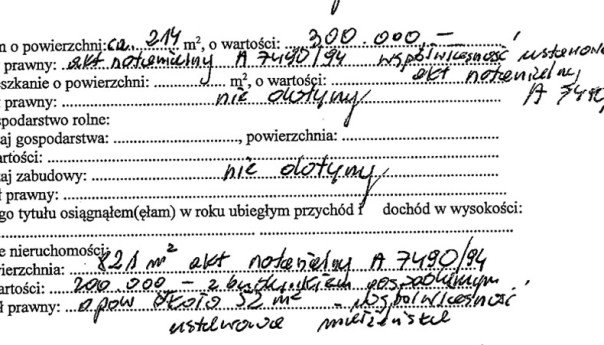 n o powierzchni: ca. 214 m², o wartości: 300.000 –
prawny: akt notarialny A 7490/94 współwłasność ustawowa
eszkanie o powierzchni: m², o wartości: akt notarialny
prawny: nie dotyczy A 7490
spodarstwo rolne:
aj gospodarstwa: , powierzchnia:
artości:
aj zabudowy: nie dotyczy
ł prawny:
go tytułu osiągnąłem(ęłam) w roku ubiegłym przychód i dochód w wysokości:
e nieruchomości:
ierzchnia: 821 m² akt notarialny A 7490/94
artości: 200.000 – z budynkiem gospodarczym
ł prawny: o pow około 52 m² - współwłasność
ustawowa małżeńska